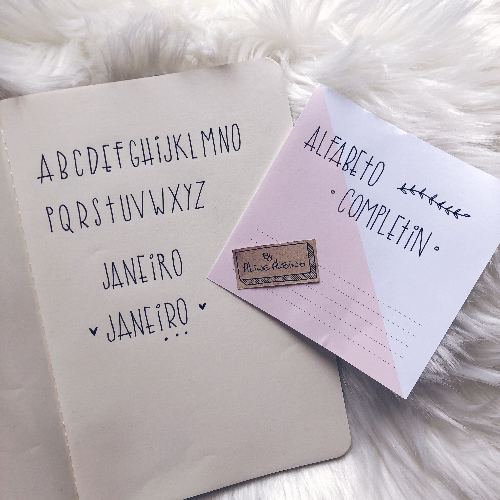 ABCDEFGHiJKLMNO
PQRStUVWXYZ
JANEiRO
JANEiRO
ALFABEtO
COMPLEtiN
By